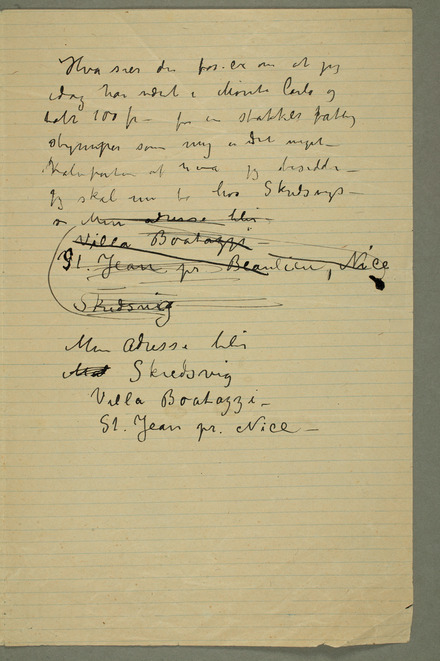 Hva sier du for. ex om at jeg
idag har vært i Monte Carlo og
tabt 100 fr – for en stakkels fattig
som mig er det meget –
af hva jeg
Jeg skal nu bo hos Skredsvigs –
Min adresse blir
Villa Boatazzi
St. Jean pr Beaulieu, Nice
Skredsvig
Min adresse blir
Skredsvig
Villa Boatazzi –
St. Jean pr. Nice –